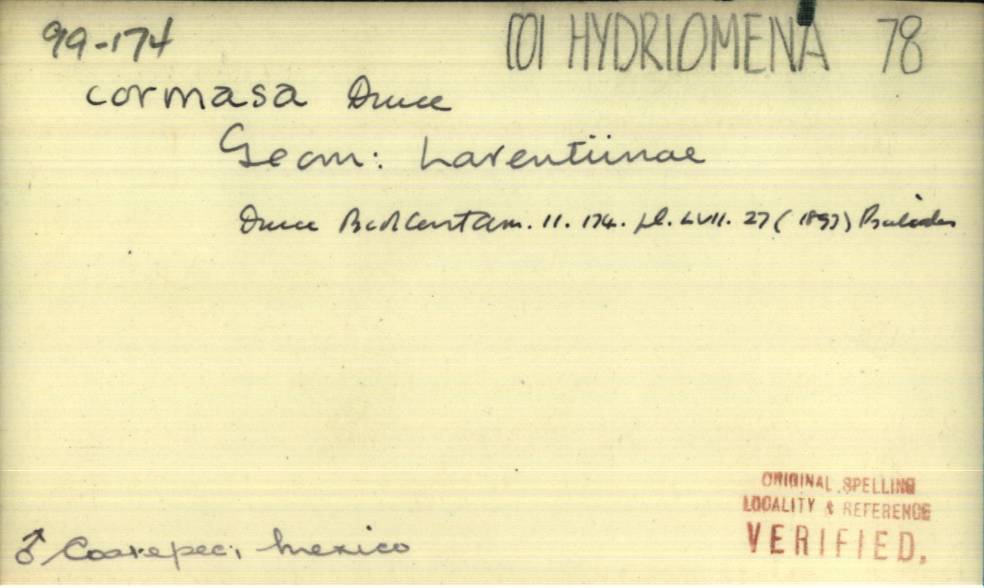 99-174 (O) HYDRIOMENA 78
cormasa Druce
Geom: Larentiinae
Druce Biol Cent Am. 11. 174. pl. LVII. 27 (1893)
ORIGINAL SPELLING
LOCALITY & REFERENCE
VERIFIED.
♂ Coatepec, Mexico